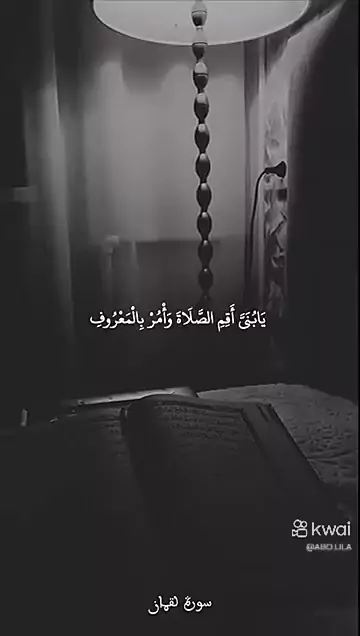 يَابُنَيَّ أَقِمِ الصَّلَاةَ وَأْمُرْ بِالْمَعْرُوفِ
kwai
@ABO LILA
سورة لقمان